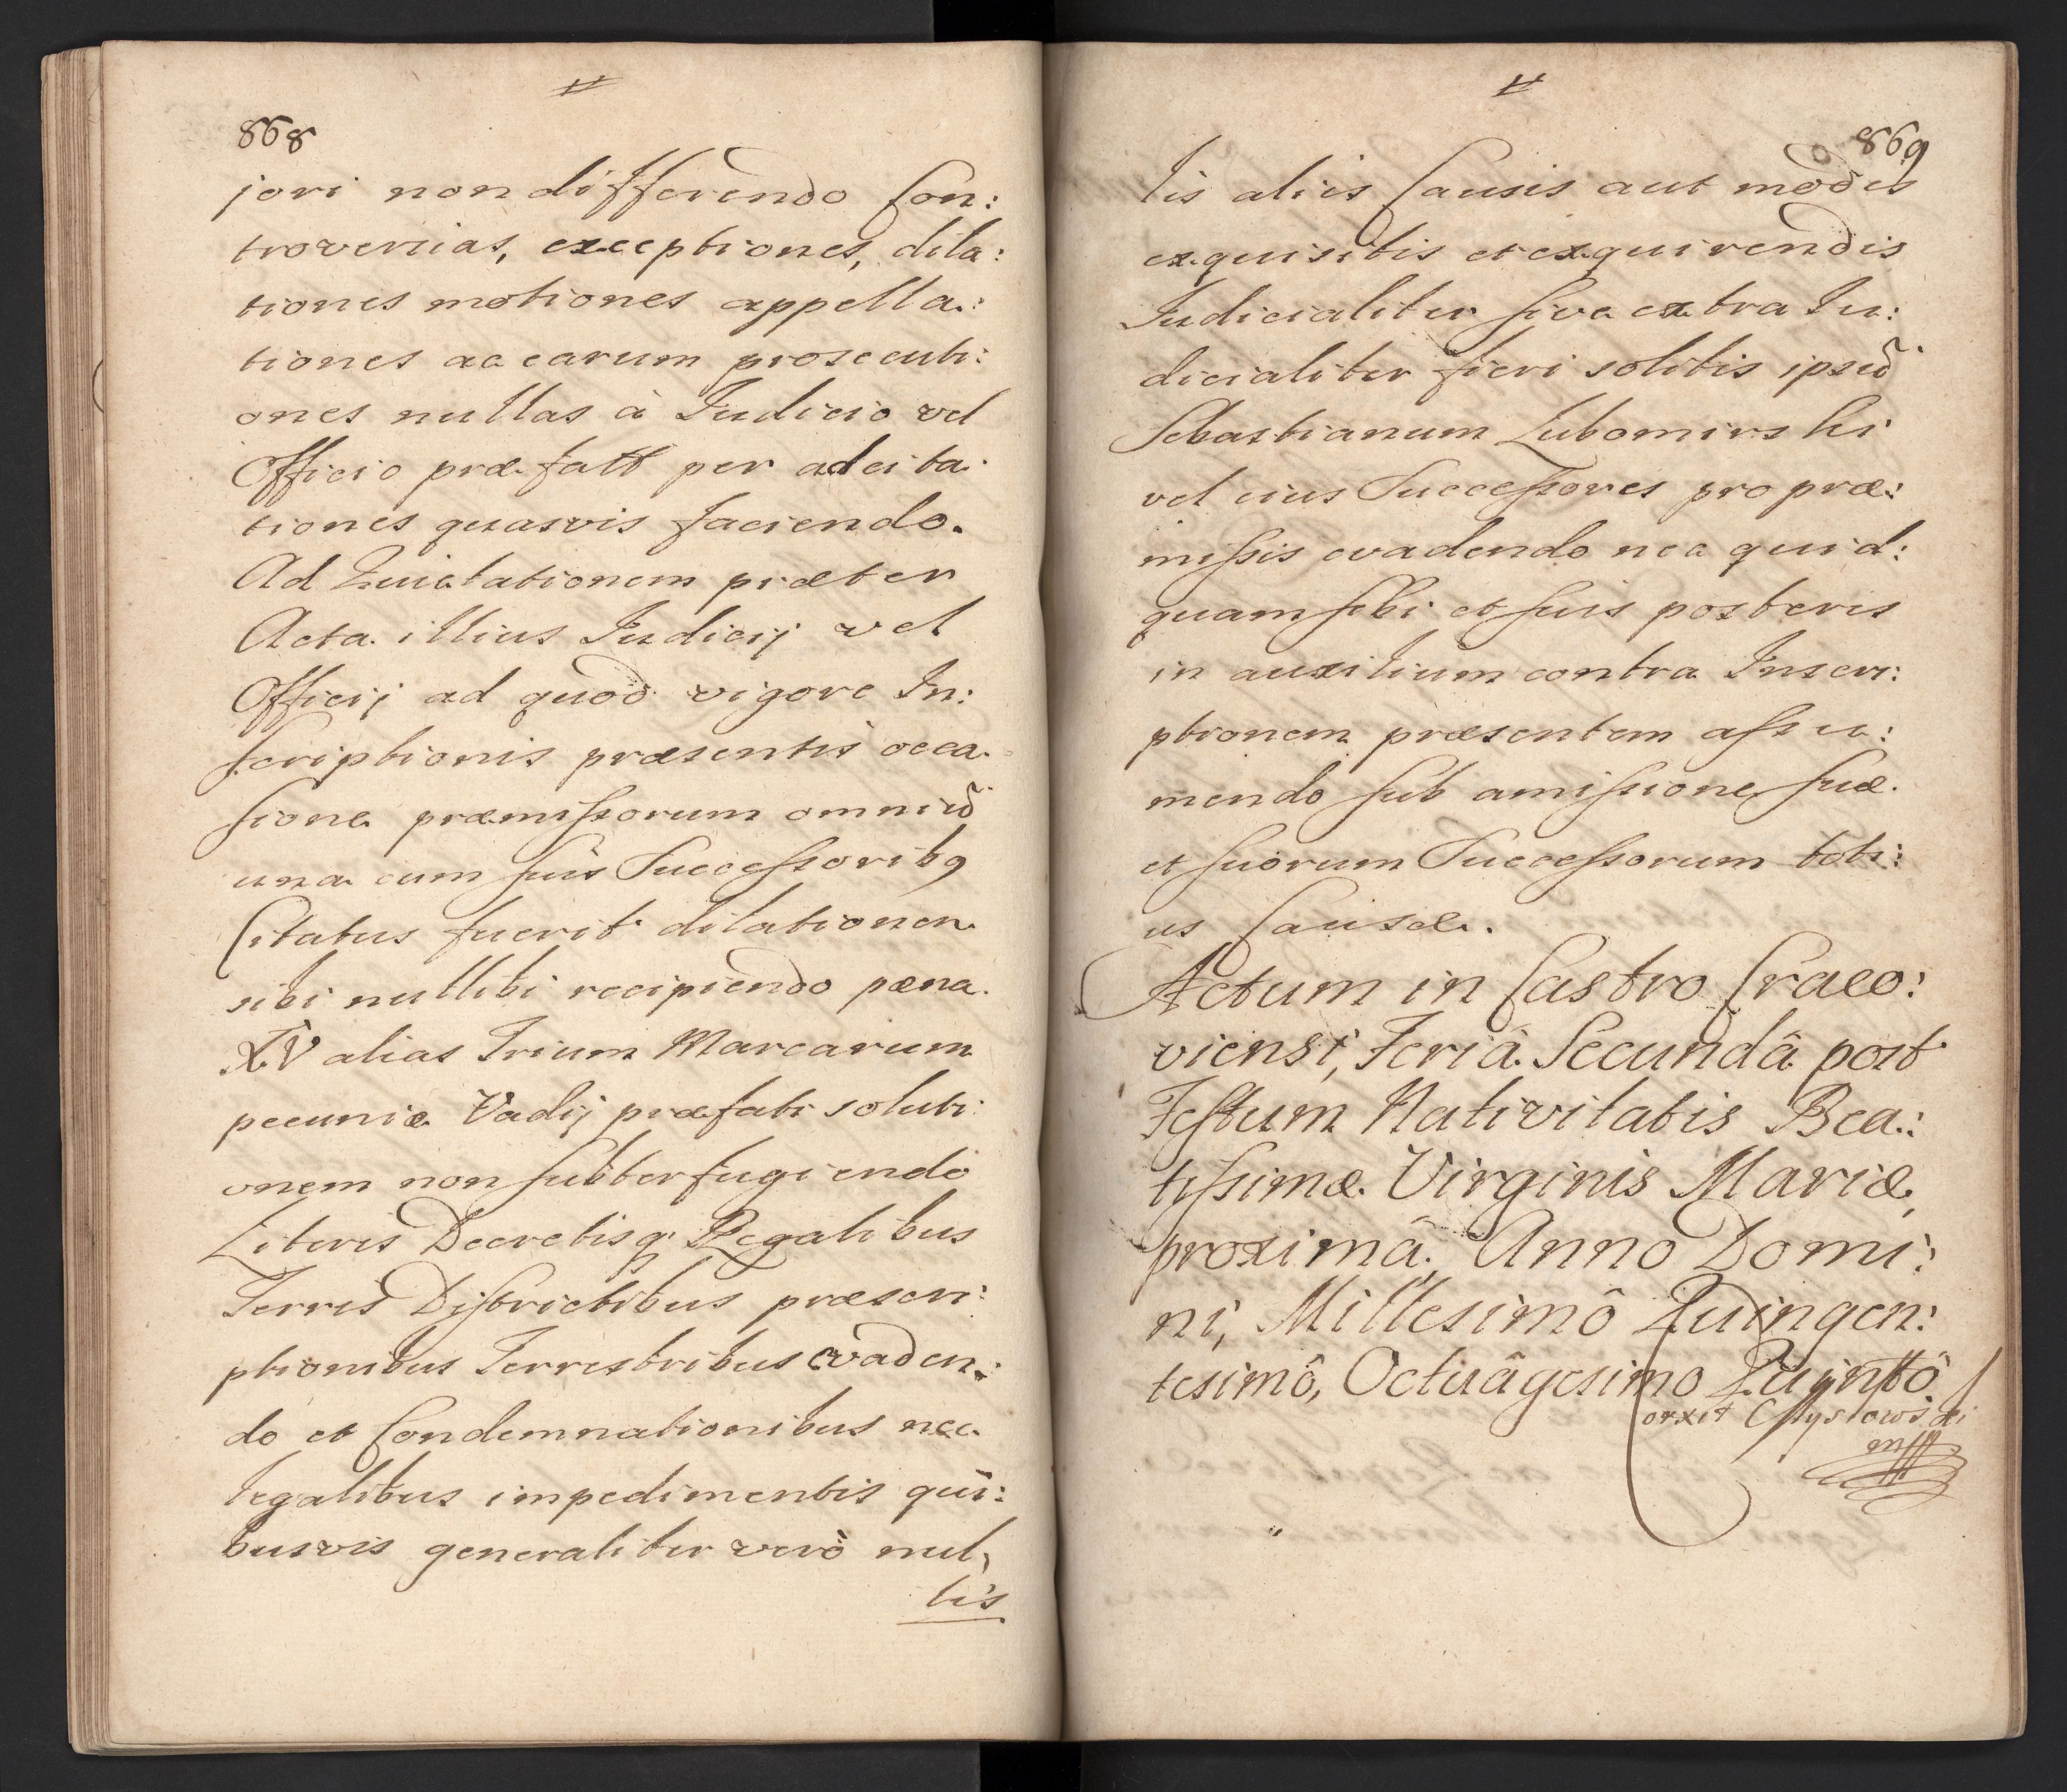 868
jori non differendo Con:
troversias, exceptiones, dila:
tiones motiones appella:
tiones ac earum prosecuti:
ones nullas à Judicio vel
Officio præfatt per adcita
tiones quasvis faciendo.
Ad Quietationem præter
Acta illius Judicij vel
Officij ad quod vigore In:
scriptionis præsentis occa
sione præmissorum omniũ
una cum suis Successoribq
Citatus fuerit dilationem
sibi nullibi recipiendo pæna
XV alias Trium Marcarum
pecuniæ Vadij præfati soluti
onem non subterfugiendo
Literis Decretisq Regalibus
Terris Districtibus præscri:
ptionibus Terrestribus evaden:
do et Condemnationibus nec
legalibus impedimentis qui:
busvis generaliter verò nul,
lis
869
lis aliis Causis aut modis
exquisitis et exquirendis
Judicialiter sive extra Ju:
dicialiter fieri solitis ipsũ
Sebastianum Lubomirski
vel eius Successores pro præ:
missis evadendo nec quid:
quam sibi et suis posteris
in auxilium contra Inscri:
ptionem præsentem assu:
mendo sub amissione suæ
et suorum Successorum toti:
us Causæ.
Actum in Castro Craco:
viensi, Feriâ Secundâ post
Festum Nativitatis Bea:
tissimæ Virginis Mariæ,
proximâ. Anno Domi:
ni, Millesimô Quingen:
tesimô, Octuâgesimo Quintô.